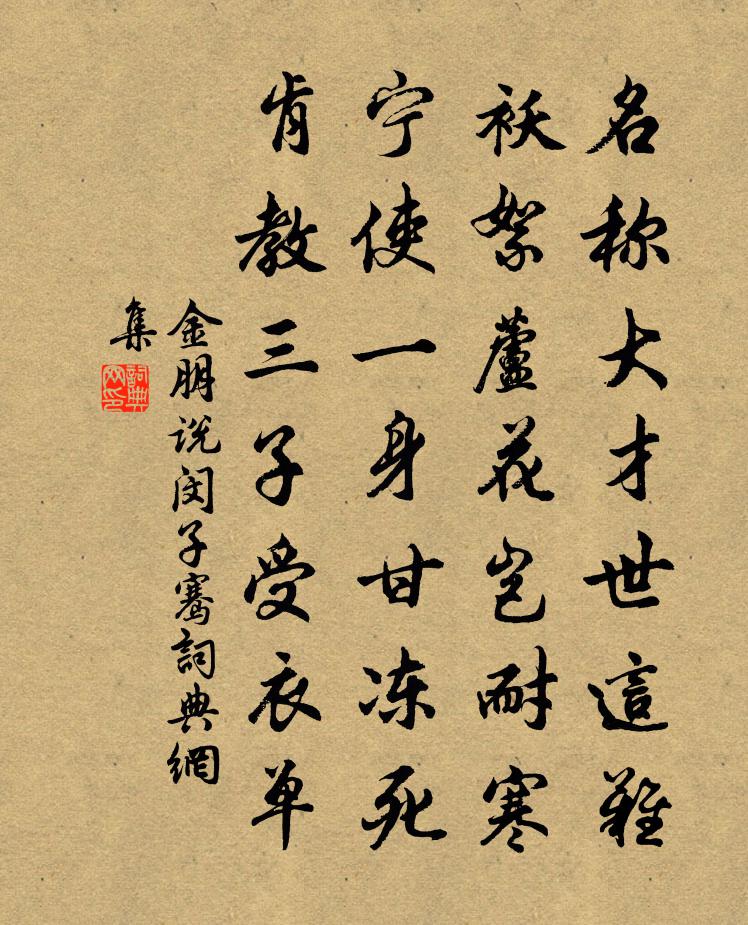 名称大才世這難
袄絮蘆花岂耐寒
宁使一身甘冻死
肯教三子受衣单
金朋说闵子骞詞典網
集
詞典网印